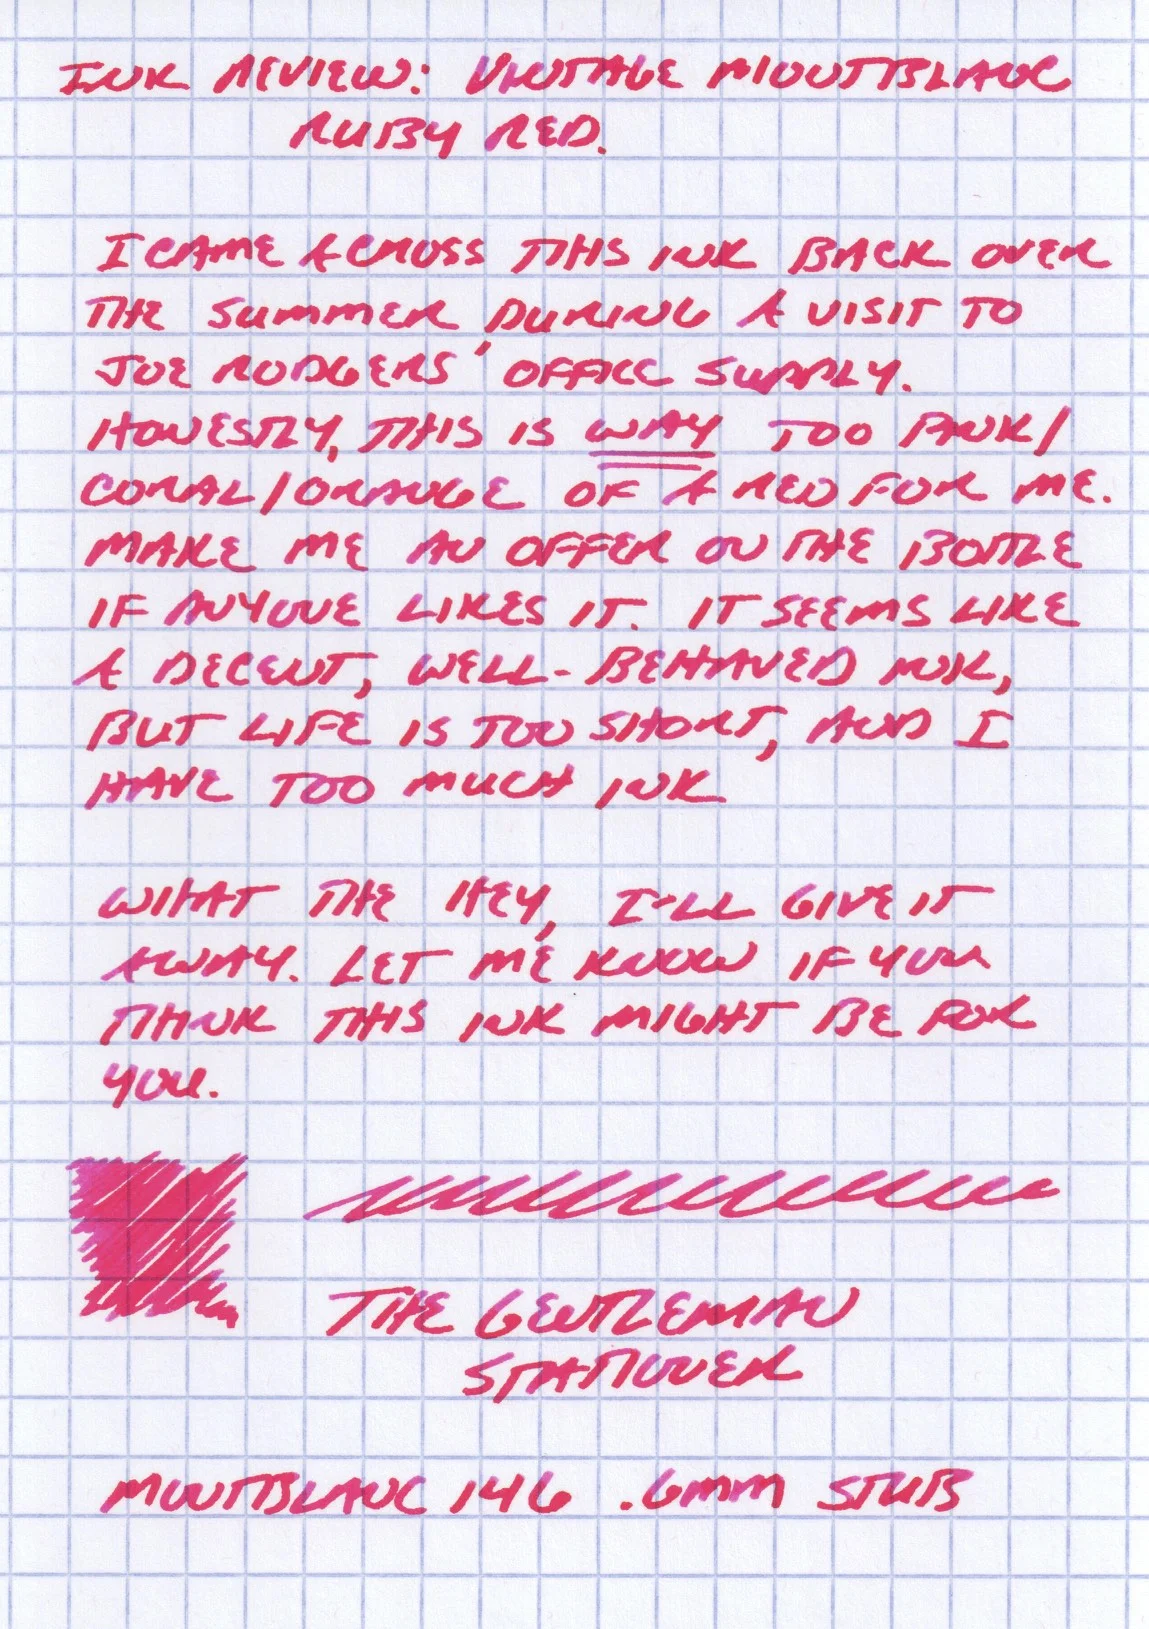 INK REVIEW: VINTAGE MONTBLANC
RUBY RED.
I CAME ACROSS THIS INK BACK OVER
THE SUMMER, DURING A VISIT TO
JOE RODGERS' OFFICE SUPPLY.
HONESTLY, THIS IS WAY TOO PINK/
CORAL/ORANGE OF A RED FOR ME.
MAKE ME AN OFFER ON THE BOTTLE
IF ANYONE LIKES IT. IT SEEMS LIKE
A DECENT, WELL-BEHAVED INK,
BUT LIFE IS TOO SHORT, AND I
HAVE TOO MUCH INK
WHAT THE HEY, I'LL GIVE IT
AWAY. LET ME KNOW IF YOU
THINK THIS INK MIGHT BE FOR
YOU.
THE GENTLEMAN
STATIONER
MONTBLANC 146 .6MM STUB